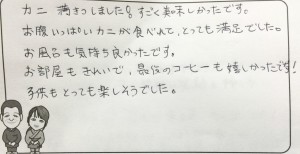 カニ 満きつしました!すごく美味しかったです。
お腹いっぱいカニが食べれて、とっても満足でした。
お風呂も気持ち良かったです。
お部屋もきれいで、最後のコーヒーも嬉しかったです!
子供もとっても楽しそうでした。